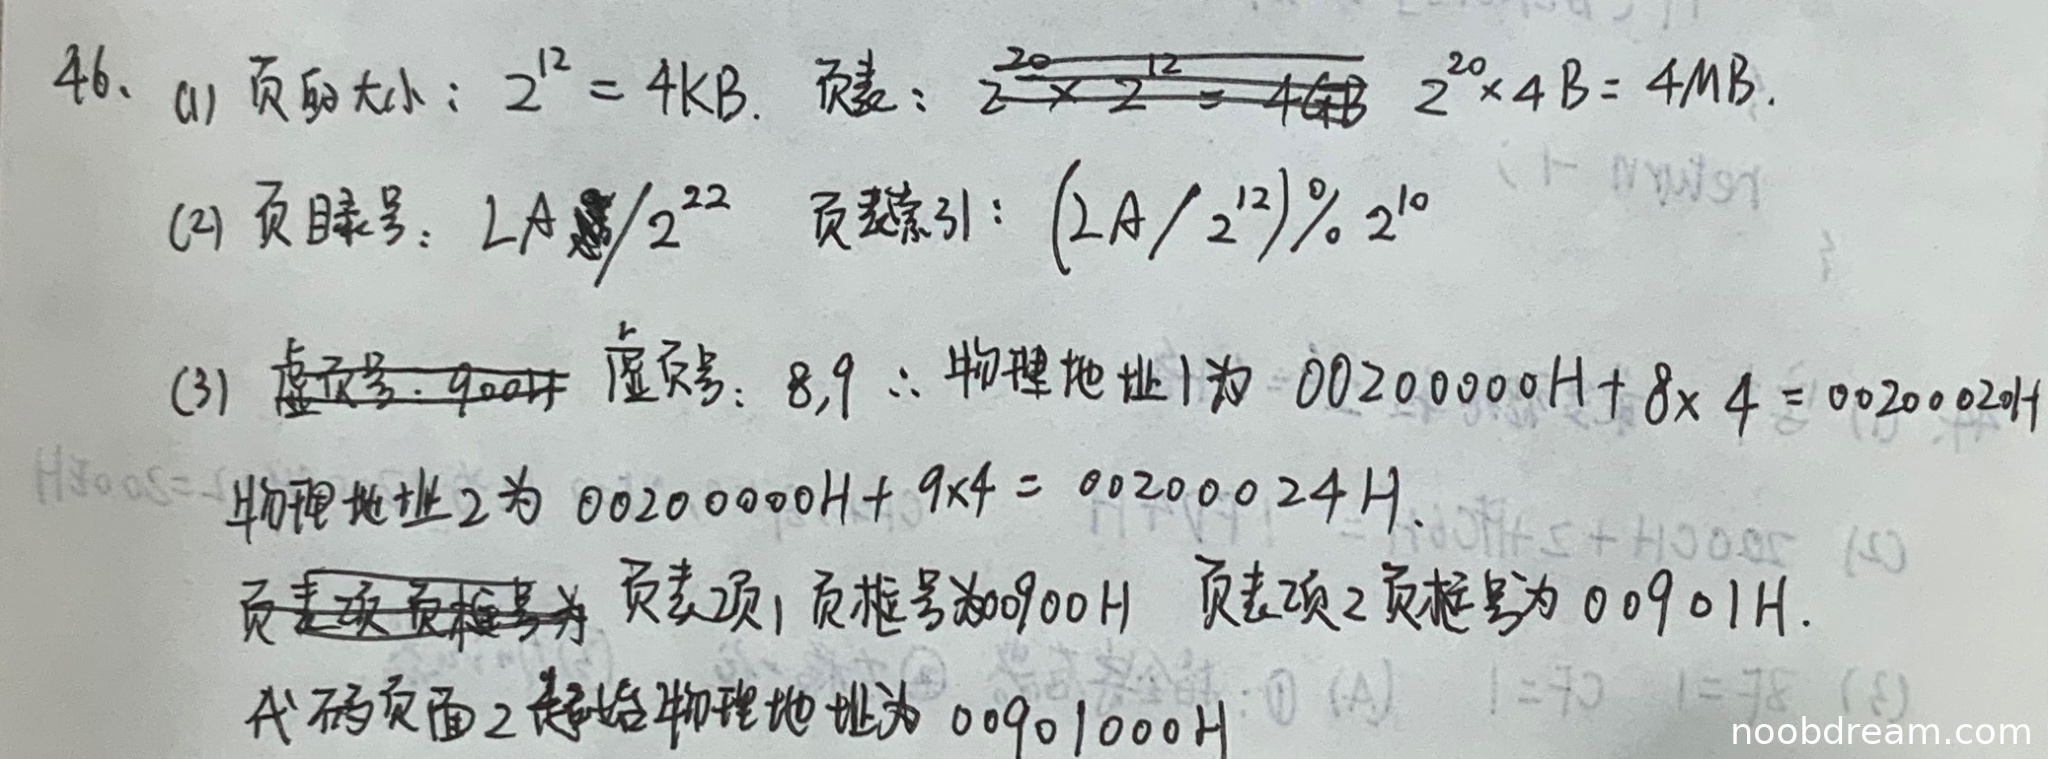 46. (1) 页的大小: 2^12 = 4KB. 页表: 2^20 × 4B = 4MB.
(2) 页目录号: LA / 2^22 页表索引: (LA / 2^12) % 2^10
(3) 虚页号: 8,9 ∴ 物理地址1为 00200000H + 8×4 = 00200020H
物理地址2为 00200000H + 9×4 = 00200024H.
页表项1页框号为00900H 页表项2页框号为00901H.
代码页面2起始物理地址为 00901000H
noobdream.com